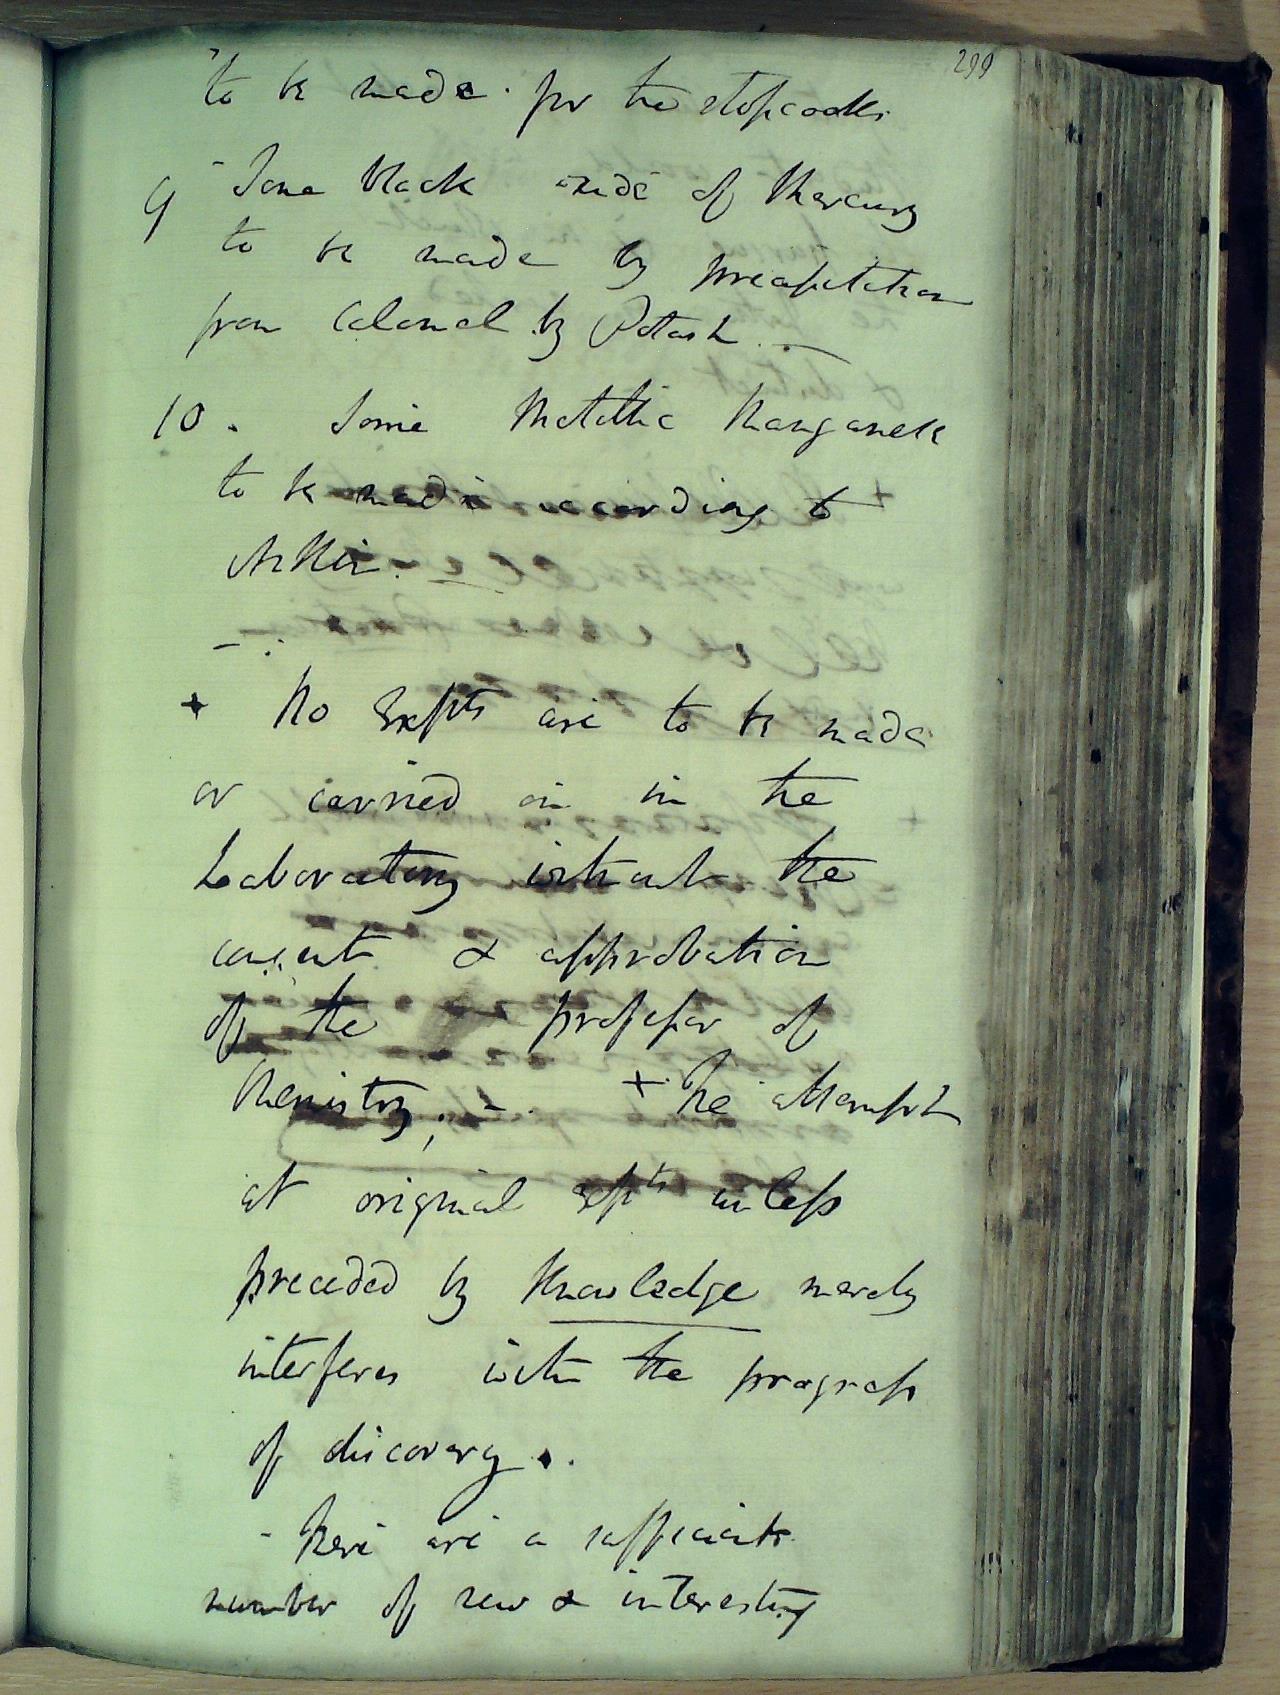 299
to be made for the stopcocks
9 - Some black oxide of Mercury
to be made by precipitation
from Calomel by Potash. -
10. Some Metallic Manganese
to be made according to
- .
+ No Expts are to be made
or carried on in the
Laboratory without the
consent & approbation
of the professor of
Chemistry; - . + The attempt
at original expts unless
preceded by Knowledge merely
interferes with the progress
of discovery. .
- There are a sufficient
number of new & interesting